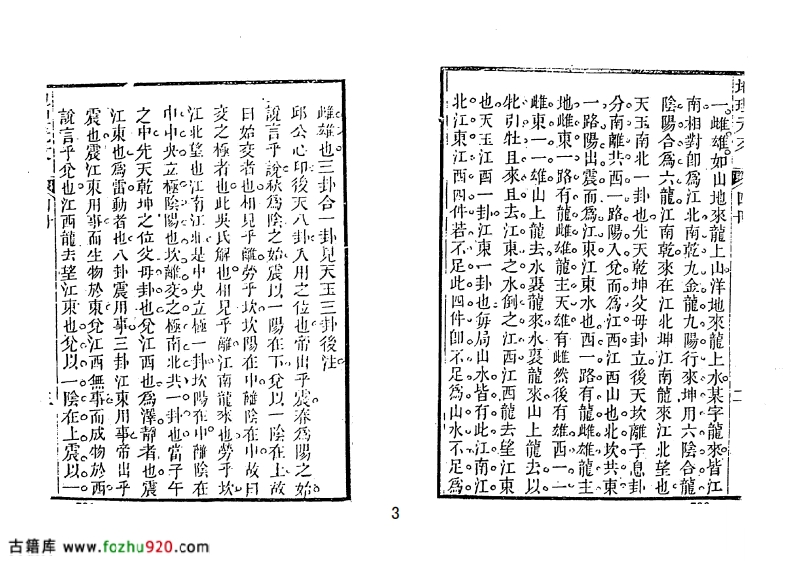 一雌雄如山地來龍上山洋地來龍上水某字龍來皆江
南相對卽爲江北南乾九金龍九陽行來坤用六陰合龍
陰陽合爲六龍江南乾來在江北坤江南龍來江北望也
天玉南北一卦也先天乾坤父母卦立後天坎離子息卦
分南離共西一路陽入兌而爲江西江西山也北坎共東
一路陽出震而爲江東江東水也西一路有龍雌雄龍主
地雌東一路有龍雌雄龍主天雄有雌然後有雄西一一
雌東一一雄山上龍去水裏龍來水裏龍來山上龍去以
牝引牡且來且去江東之水倒之江西江西龍去望江東
也天玉江西一卦江東一卦也每局山水皆有此江南江
北江東江西四件若不足此四件卽不足爲山水不足爲
雌雄也三卦合一卦見天玉三卦後注
邱公心印後天八卦入用之位也帝出乎震春爲陽之始
說言乎兌秋爲陰之始震以一陽在下兌以一陰在上故
曰始交者也相見乎離勞乎坎坎陽在中離陰在中故曰
交之極者也此吳氏解也相見乎離江南龍來也勞乎坎
江北望也江南江北是中央立極一卦坎陽在中離陰在
中中央立極陰陽也坎離交之極南北共一卦也當子午
之中先天乾坤之位父母卦也兌江西也爲澤靜者也震
江東也爲雷動者也八卦震用事三卦江東用事帝出乎
震也震江東用事而生物於東兌江西無事而成物於西
說言乎兌也江西龍去望江東也兌以一陰在上震以一
3
古籍库 www.fozhu920.com